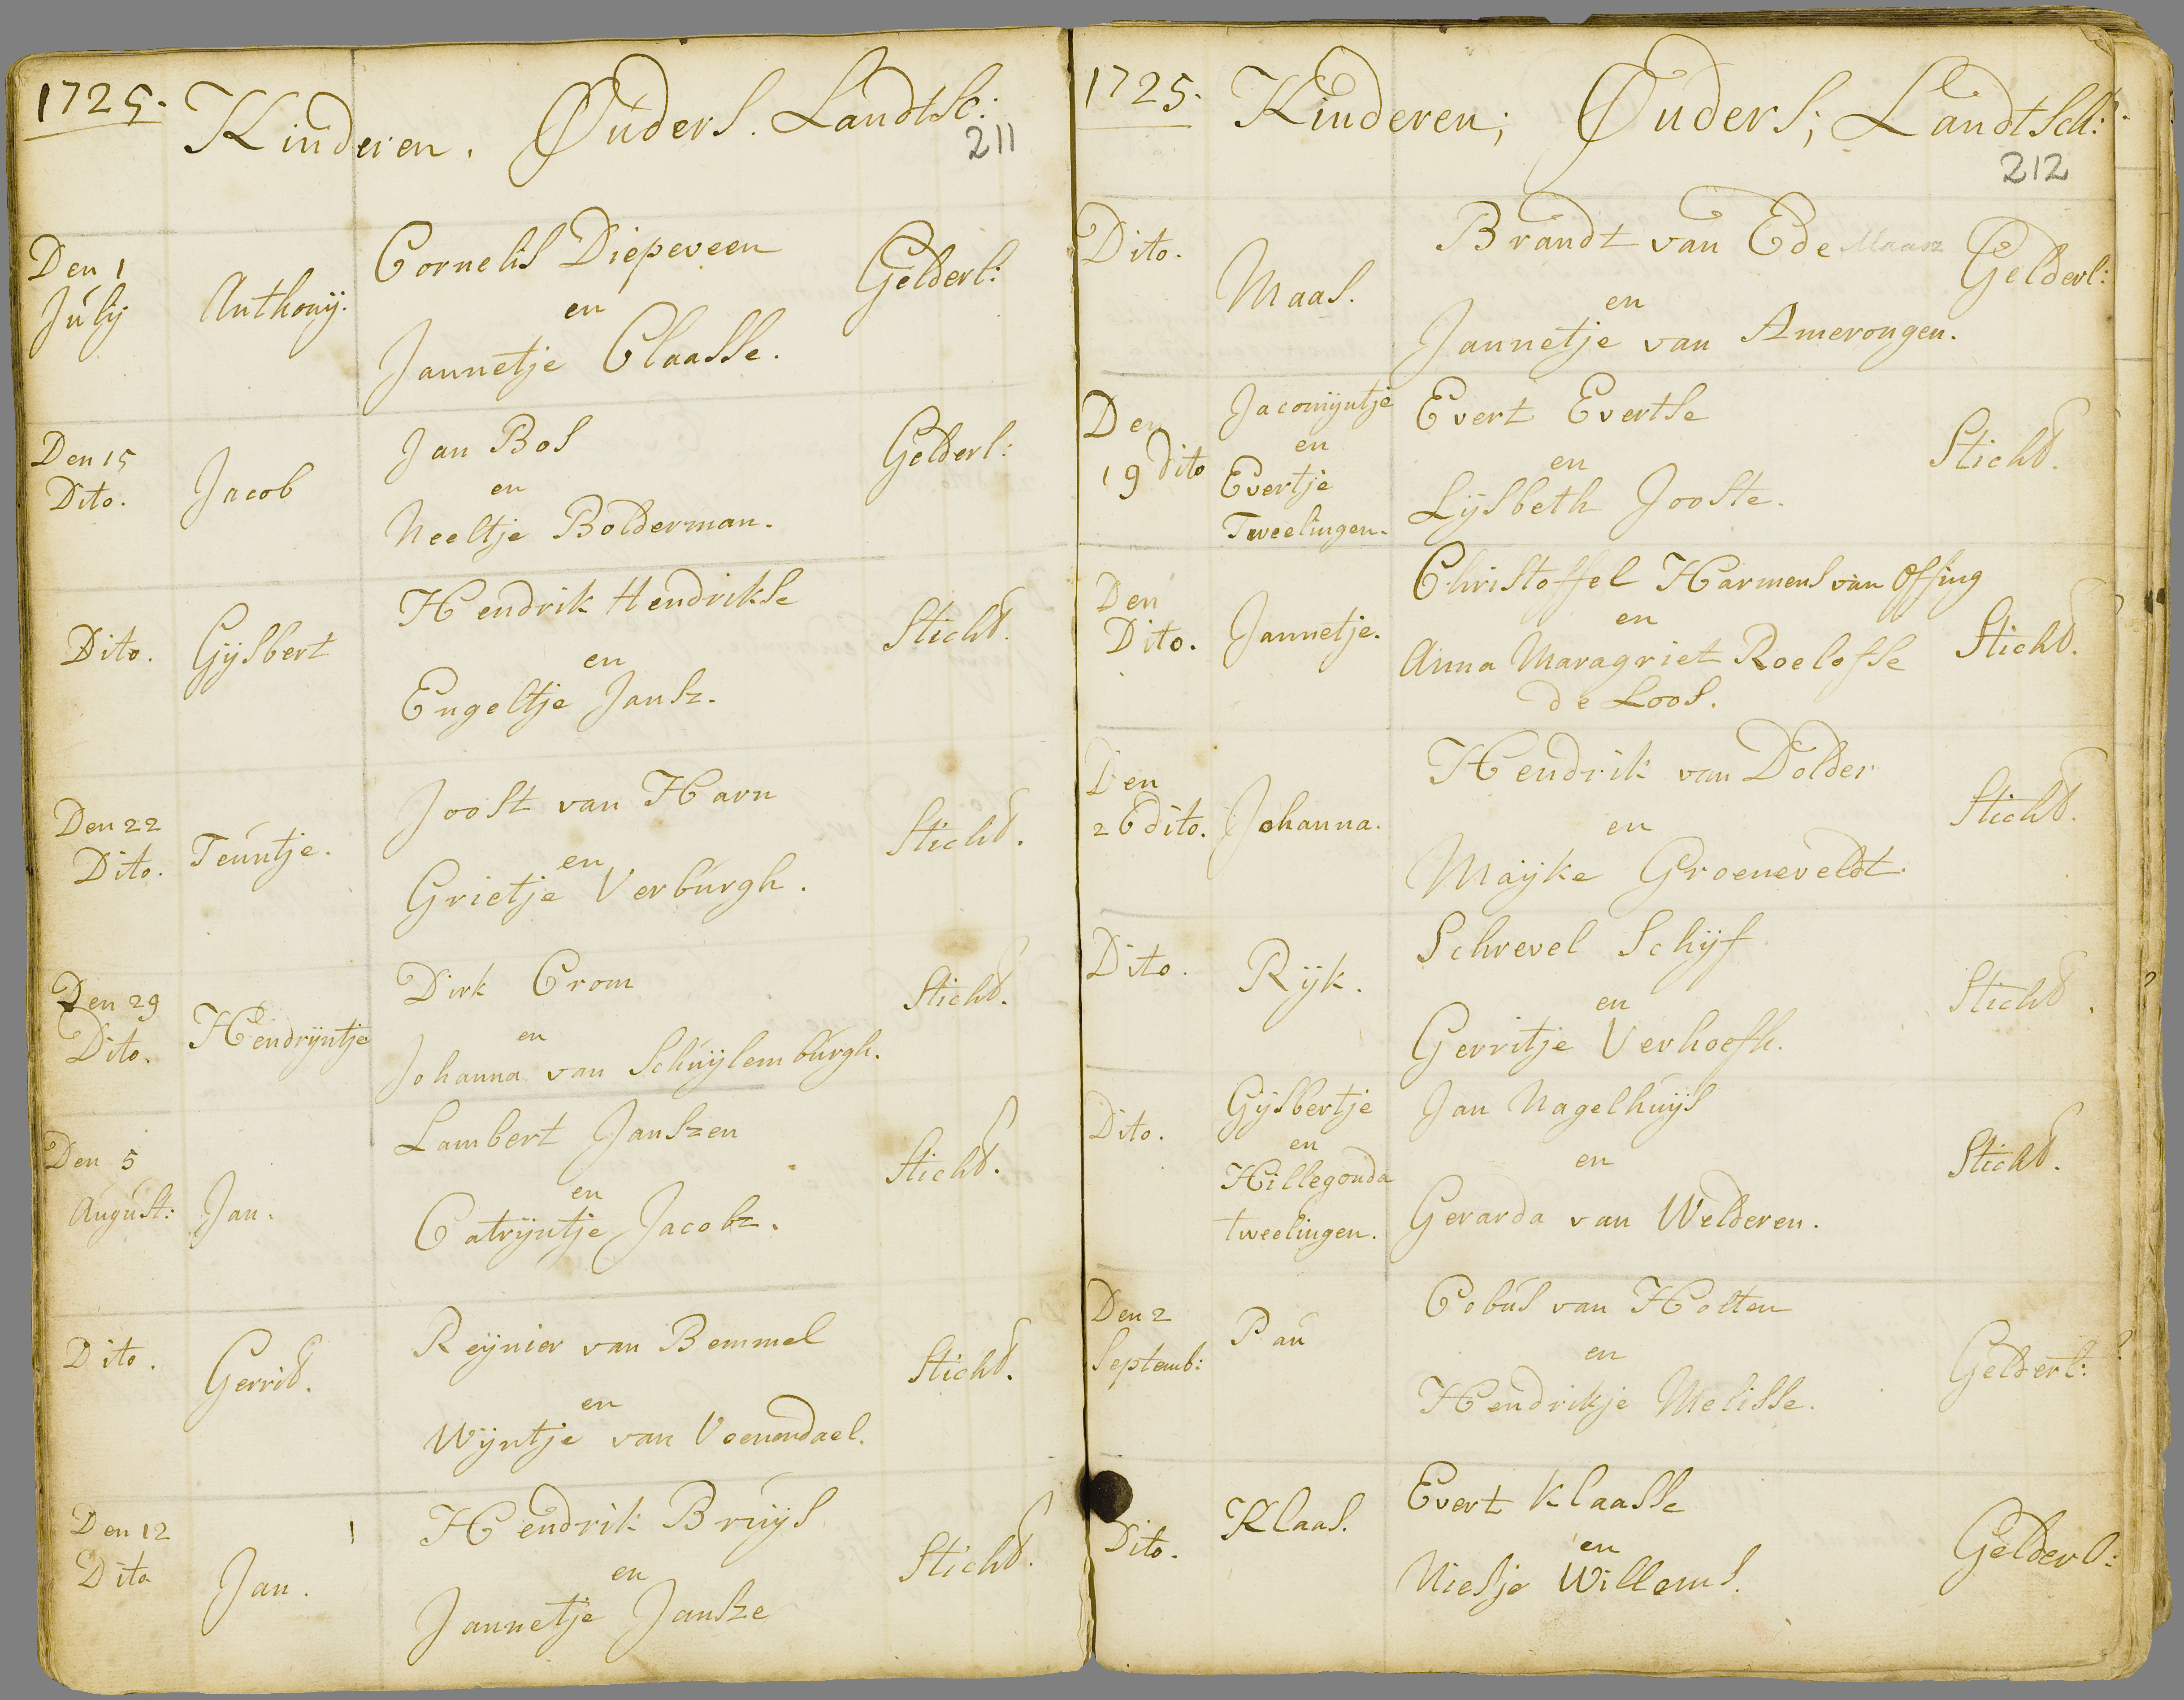 1725. Kinderen. Ouders. Landtsc:
211
Den 1
July
Anthonij.
Cornelis Diepeveen
en
Jannetje Claasse.
Gelderl:
Den 15
Dito.
Jacob
Jan Bos
en
Neeltje Bolderman.
Gelderl:
Dito.
Gijsbert
Hendrik Hendrikse
en
Engeltje Jansz.
Sticht.
Den 22
Dito.
Teuntje.
Joost van Harn
en
Grietje Verburgh.
Sticht.
Den 29
Dito.
Hendrijntje
Dirk Crom
en
Johanna van Schuijlemburgh.
Sticht.
Den 5
August:
Jan.
Lambert Janszen
en
Catrijntje Jacobz.
Sticht.
Dito.
Gerrit.
Reijnier van Bemmel
en
Wijntje van Veenendael.
Sticht.
Den 12
Dito
Jan.
Hendrik Bruijs
en
Jannetje Jansze
Sticht.
1725. Kinderen; Ouders; Landtsch:
212
Dito.
Maas.
Brandt van Ede Maasz
en
Jannetje van Amerongen.
Gelderl:
Den
19 dito
Jacomijntje
en
Evertje
Tweelingen.
Evert Evertse
en
Lijsbeth Jooste.
Sticht.
Den
Dito.
Jannetje.
Christoffel Harmens van Offing
en
Anna Maragriet Roelofse
de Loos.
Sticht.
Den
26 dito.
Johanna.
Hendrik van Dolder
en
Maijke Groeneveldt.
Sticht.
Dito.
Rijk.
Schrevel Schijf
en
Gerritje Verhoefh.
Sticht.
Dito.
Gijsbertje
en
Hillegonda
tweelingen.
Jan Nagelhuijs
en
Gerarda van Welderen.
Sticht.
Den 2
Septemb:
Pau
Cobus van Holten
en
Hendrikje Melisse.
Gelderl:
Dito.
Klaas.
Evert Klaasse
en
Niesje Willems.
Gelderl: